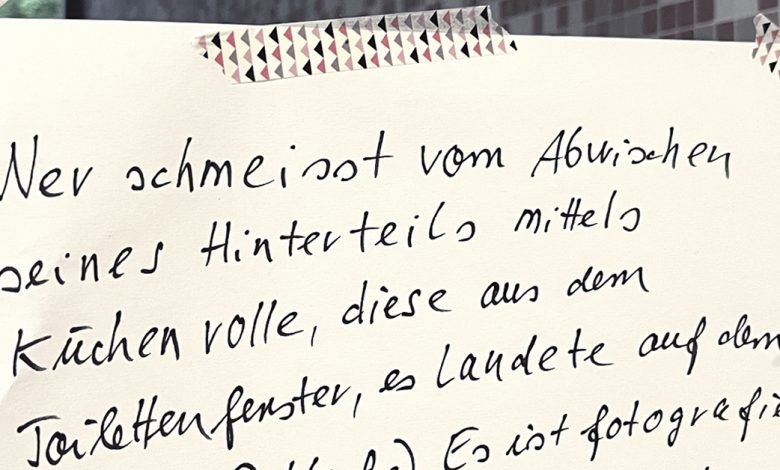 Wer schmeisst vom Abwischen
seines Hinterteils mittels
Küchen rolle, diese aus dem
Toilettenfenster, es landete auf dem
Es ist fotografi